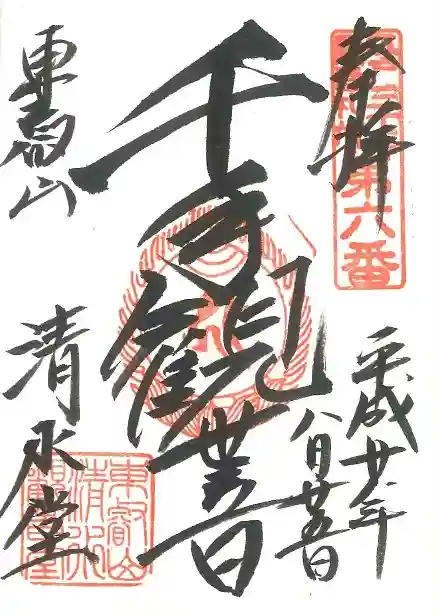 奉拝
第六番
千手觀世音
平成廿年
八月廿五日
東叡山
清水堂
東叡山
清水
觀音堂